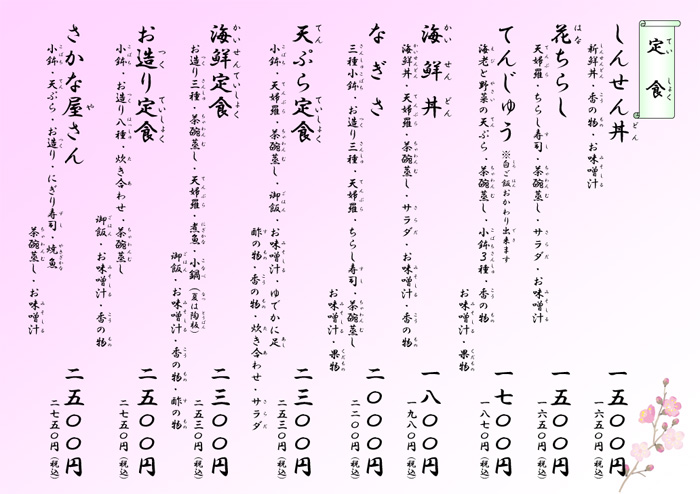 定食
しんせん丼
新鮮丼・香の物・お味噌汁
一五〇〇円
一六五〇円(税込)
花ちらし
天婦羅・ちらし寿司・茶碗蒸し・サラダ・お味噌汁
一五〇〇円
一六五〇円(税込)
てんじゅう ※白ご飯おかわり出来ます
海老と野菜の天ぷら・茶碗蒸し・小鉢3種・香の物
お味噌汁・果物
一七〇〇円
一八七〇円(税込)
海鮮丼
海鮮丼・天婦羅・茶碗蒸し・サラダ・お味噌汁・香の物
一八〇〇円
一九八〇円(税込)
なぎさ
三種小鉢・お造り三種・天婦羅・ちらし寿司・茶碗蒸し
お味噌汁・果物
二〇〇〇円
二二〇〇円(税込)
天ぷら定食
小鉢・天婦羅・茶碗蒸し・御飯・お味噌汁・ゆでかに足
酢の物・香の物・炊き合わせ・サラダ
二三〇〇円
二五三〇円(税込)
海鮮定食
お造り三種・茶碗蒸し・天婦羅・煮魚・小鍋(夏は陶板)
御飯・お味噌汁・香の物・酢の物
二三〇〇円
二五三〇円(税込)
お造り定食
小鉢・お造り八種・炊き合わせ・茶碗蒸し
御飯・お味噌汁・香の物
二五〇〇円
二七五〇円(税込)
さかな屋さん
小鉢・天ぷら・お造り・にぎり寿司・焼魚
茶碗蒸し・お味噌汁
二五〇〇円
二七五〇円(税込)